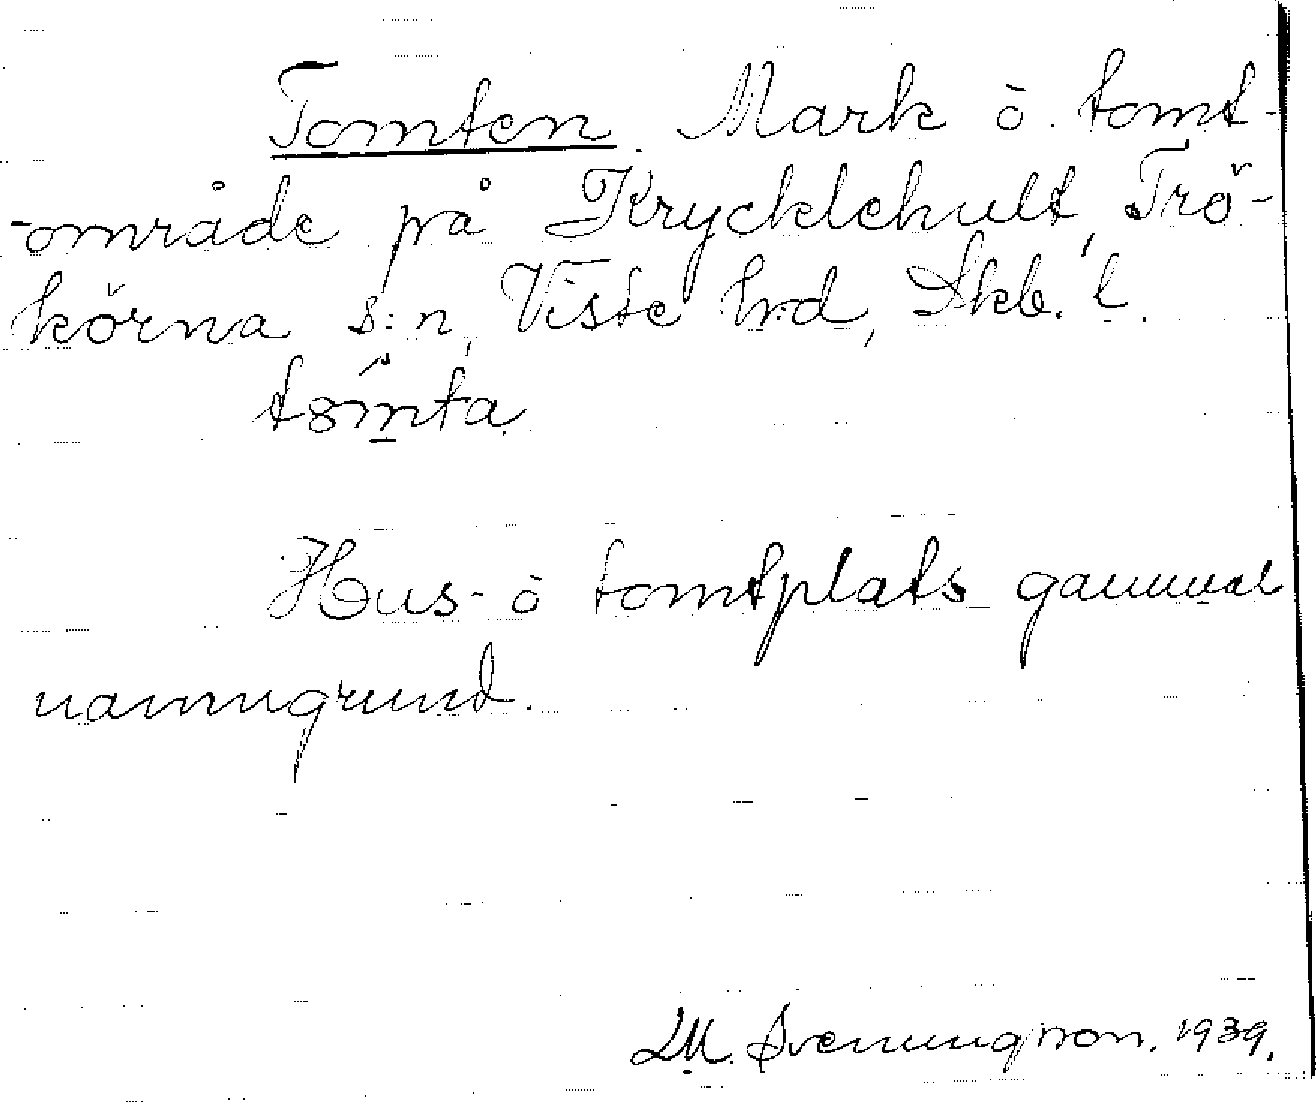 Tomten. Mark o. tomt-
-område på Krycklehult, Trö-
körna s:n, Viste hrd, Skb. l.
Hus- o tomtplats gammal
namngrund.
M. Svenungsson. 1939.